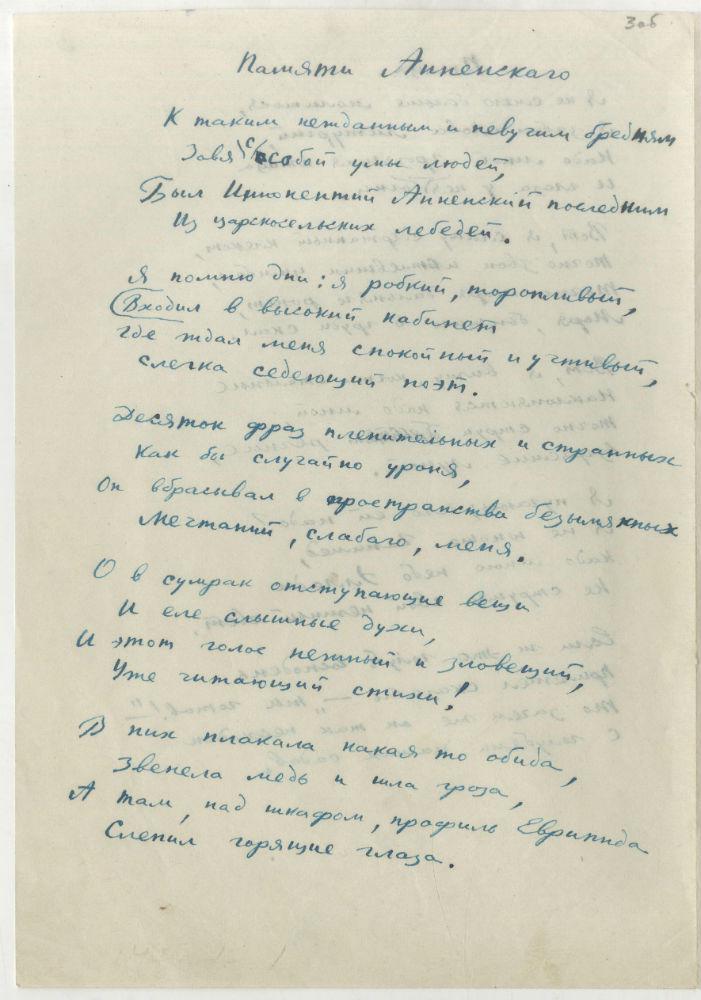 3об
Памяти Анненскаго
К таким нежданным и певучим бредням
Зовя с собой умы людей,
Был Иннокентий Анненский последним
Из царскосельских лебедей.
Я помню дни: я робкий, торопливый,
Входил в высокий кабинет
Где ждал меня спокойный и учтивый,
Слегка седеющий поэт.
Десяток фраз пленительных и странных
Как бы случайно уроня,
Он вбрасывал в пространства безымянных
Мечтаний, слабаго, меня.
О в сумрак отступающие вещи
И еле слышные духи,
И этот голос нежный и зловещий,
Уже читающий стихи!
В них плакала какая то обида,
Звенела медь и шла гроза,
А там, над шкафом, профиль Еврипида
Слепил горящие глаза.